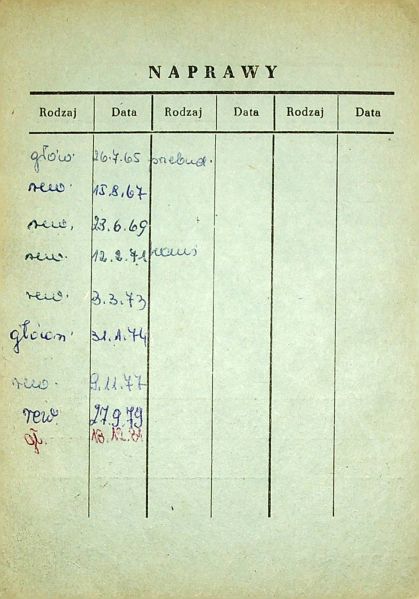 NAPRAWY
Rodzaj Data Rodzaj Data Rodzaj Data
głów. 26.7.65 przebud.
rew. 15.8.67
rew. 23.6.69
rew. 12.2.71
rew. 3.3.73
główn. 31.1.74
rew. 9.11.77
rew. 27.9.79
gł. 13.12.81